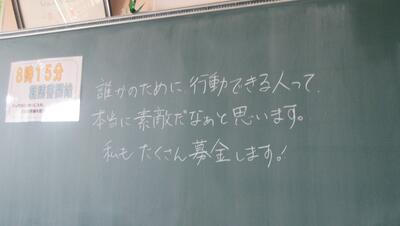 8時15分
誰かのために、行動できる人って、
本当に素敵だなぁと思います。
私もたくさん募金します!